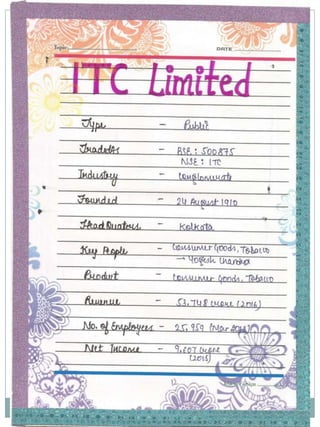 Topic
DATE
ITC Limited
Type - Public
Traded as - BSE : 500875
NSE : ITC
Industry - Conglomerate
Founded - 24 August 1910
Head Quaters - Kolkata
Key People - Consumer Goods, Tobacco
→ Yogesh Chander
Product - Consumer Goods, Tobacco
Revenue - 53,748 crore (2016)
No. of Employees - 25,959 (Mar
Net Income - 9,607 crore
(2015)
12